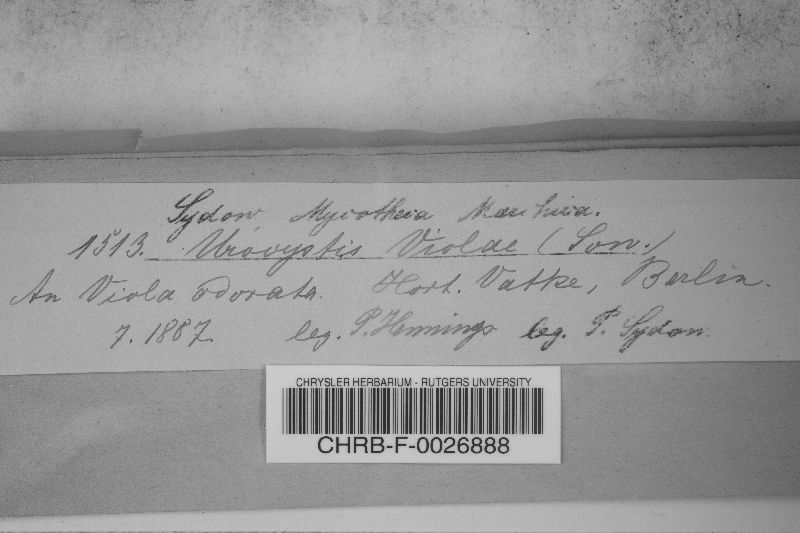 Sydow Mycotheca Marchica.
1513. Urocystis Violae (Son.)
An Viola odorata. Hort. Vatke, Berlin.
7. 1887 leg. P. Hennings leg. P. Sydow.
CHRYSLER HERBARIUM - RUTGERS UNIVERSITY
CHRB-F-0026888